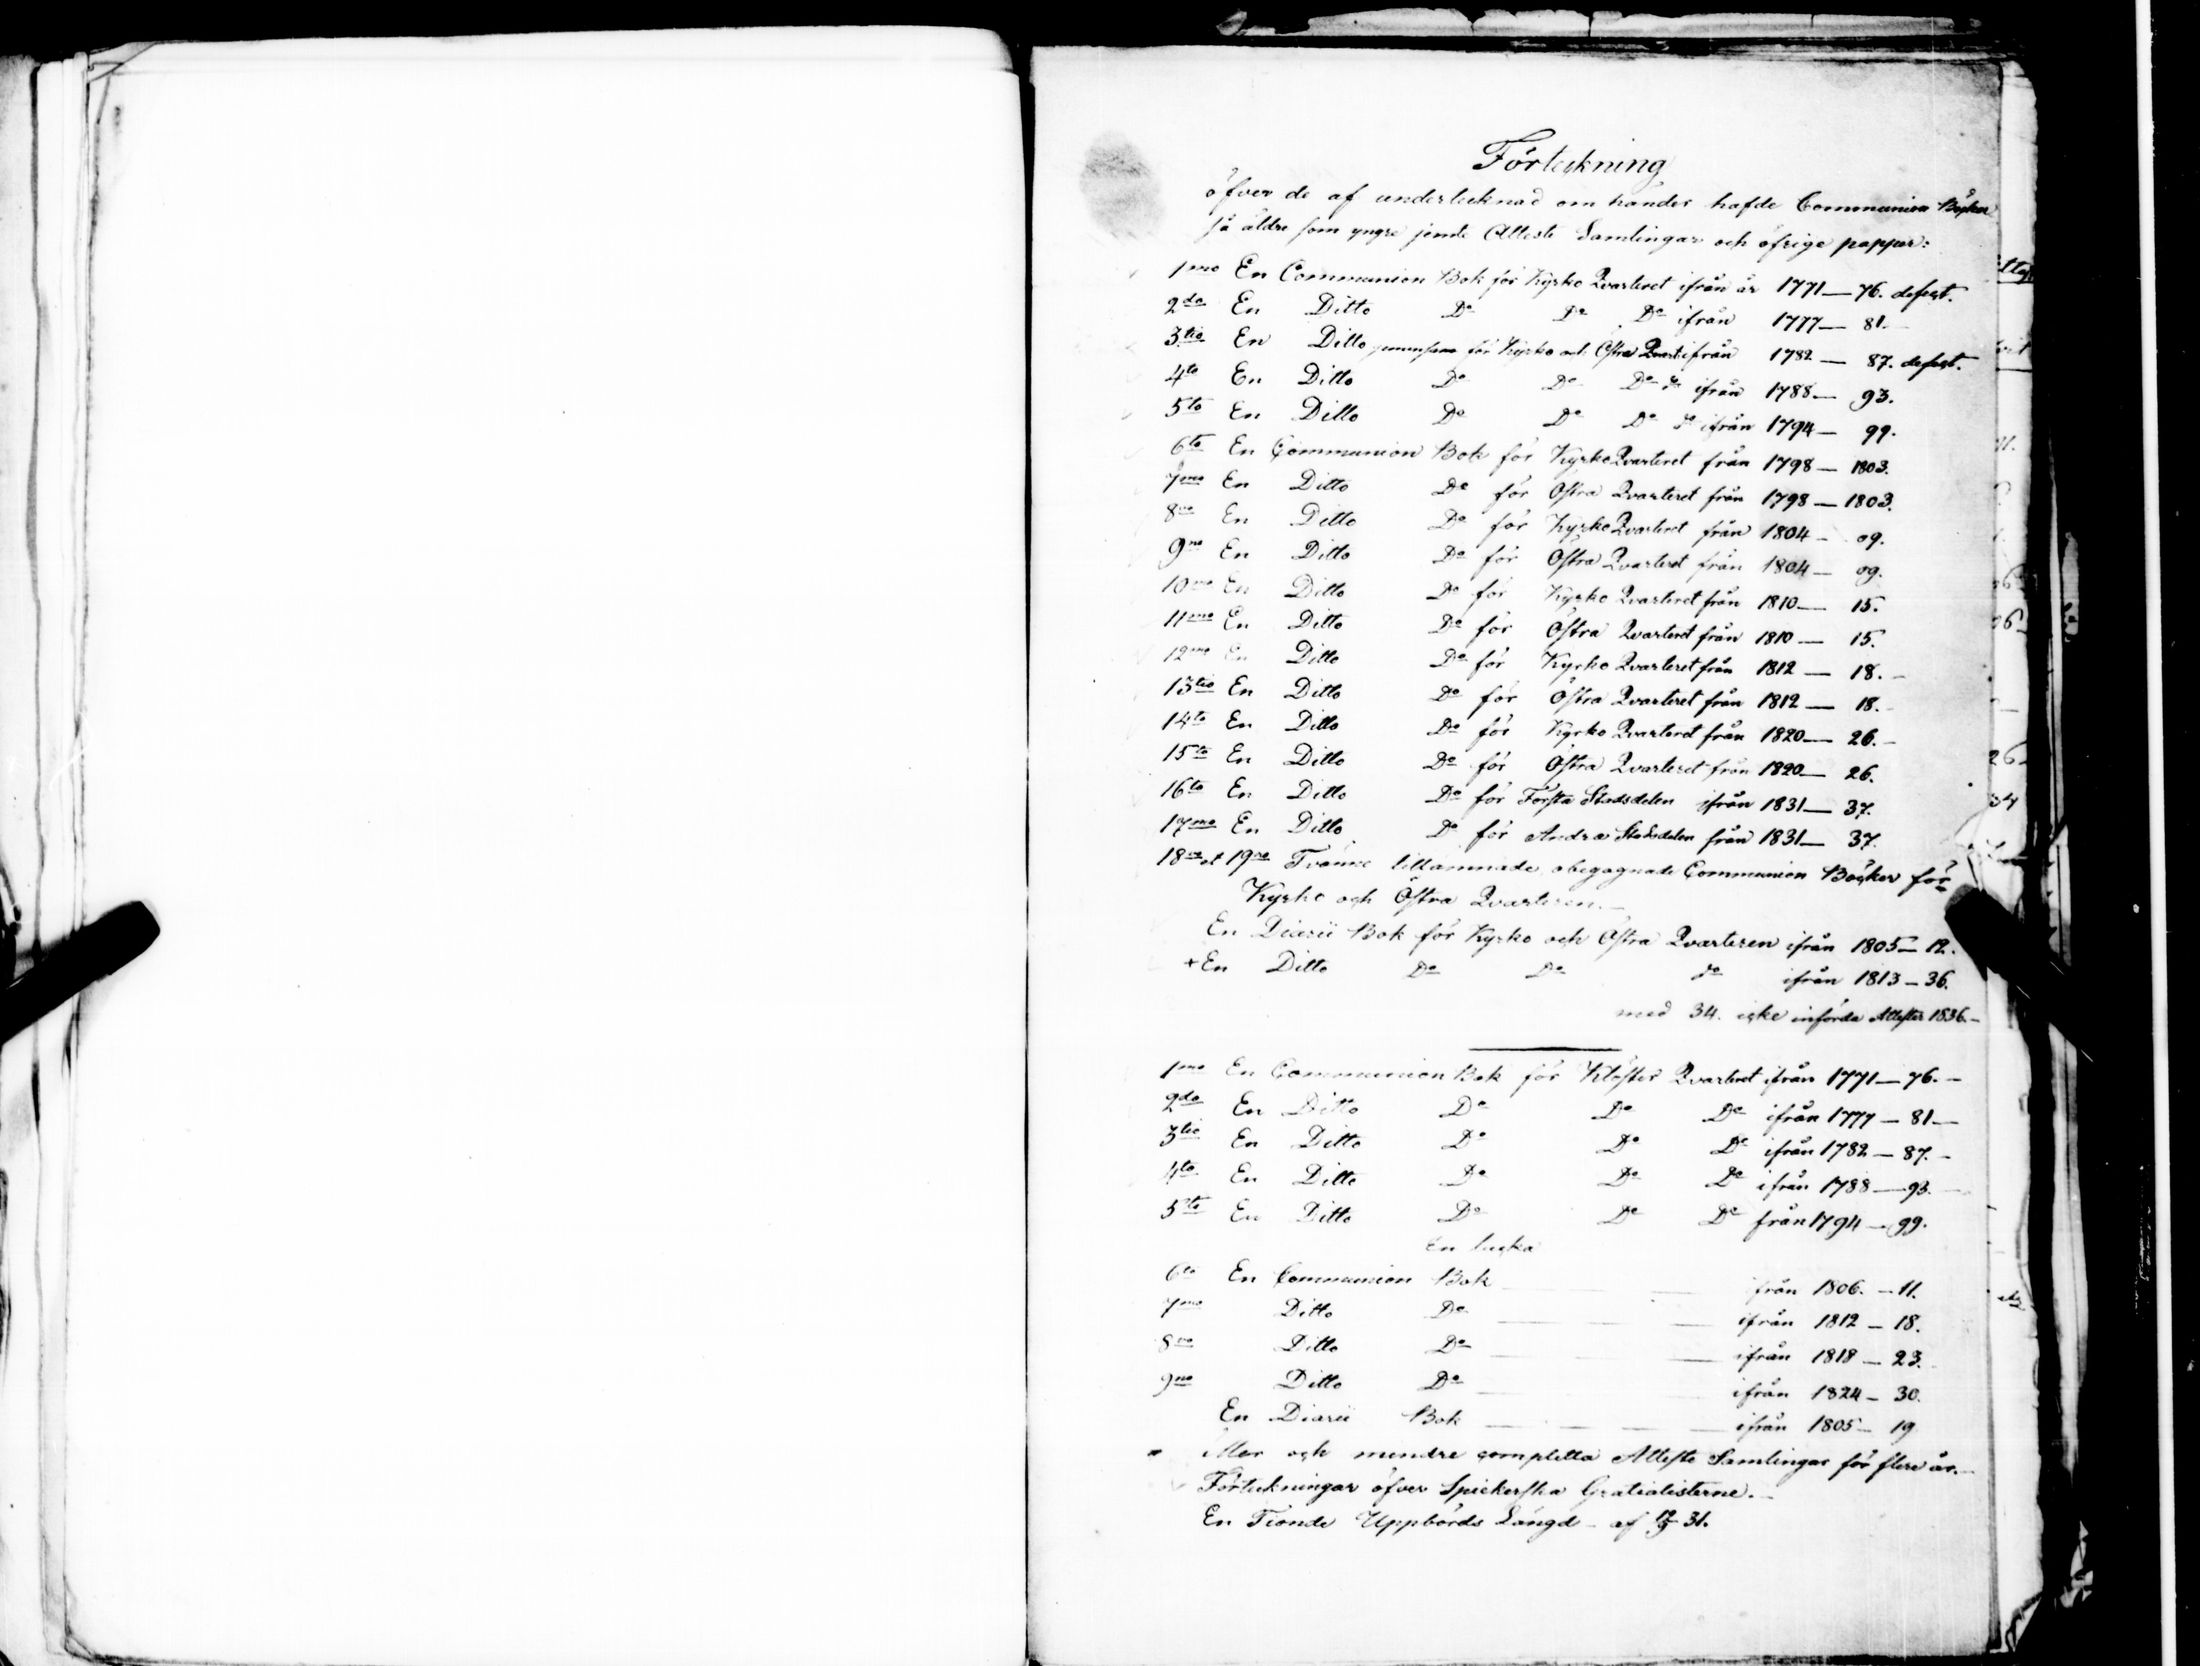 Förteckning
öfver de af undertecknad om händer hafde Communion Böcker
så äldre som yngre jemte Atteste Samlingar och öfrige papper:
1mo En Communion Bok för Kyrko Qvarteret ifrån år 1771—76. defect.
2do En Ditto Do Do Do ifrån 1777—81.—
3tio En Ditto gemensam för Kyrko och Östra Qvart ifrån 1782—87. defect.
4to En Ditto Do Do Do do ifrån 1788—93.
5to En Ditto Do Do Do do ifrån 1794—99.
6to En Communion Bok för Kyrko Qvarteret från 1798—1803.
7mo En Ditto Do för Östra Qvarteret från 1798—1803.
8vo En Ditto Do för Kyrko Qvarteret från 1804—09.
9no En Ditto Do för Östra Qvarteret från 1804—09.
10mo En Ditto Do för Kyrko Qvarteret från 1810—15.
11mo En Ditto Do för Östra Qvarteret från 1810—15.
12mo En Ditto Do för Kyrko Qvarteret från 1812—18.—
13tio En Ditto Do för Östra Qvarteret från 1812—18.
14to En Ditto Do för Kyrko Qvarteret från 1820—26.—
15to En Ditto Do för Östra Qvarteret från 1820—26.
16to En Ditto Do för Första Stadsdelen ifrån 1831—37.
17mo En Ditto Do för Andra Stadsdelen från 1831—37.
18vo et 19no Tvänne tillämnade, obegagnade Communion Böcker för
Kyrko och Östra Qvarteren.—
En Diarii Bok för Kyrko och Östra Qvarteren ifrån 1805—12.
+ En Ditto Do Do do ifrån 1813—36.
med 34. icke införda Attester 1836.—
1mo En Communion Bok för Kloster Qvarteret ifrån 1771—76.—
2do En Ditto Do Do Do ifrån 1777—81—
3tio En Ditto Do Do Do ifrån 1782—87.—
4to En Ditto Do Do Do ifrån 1788—93.
5to En Ditto Do Do Do från 1794—99.
En lucka
6to En Communion Bok ifrån 1806.—11.
7mo Ditto Do ifrån 1812—18.
8vo Ditto Do ifrån 1818—23.
9no Ditto Do ifrån 1824—30.
En Diarii Bok ifrån 1805—19
Mer och mindre completta Atteste Samlingar för flere år.—
Förteckningar öfver Spiekerska Gratialisterne.—
En Tionde Uppbörds Längd — af 31.